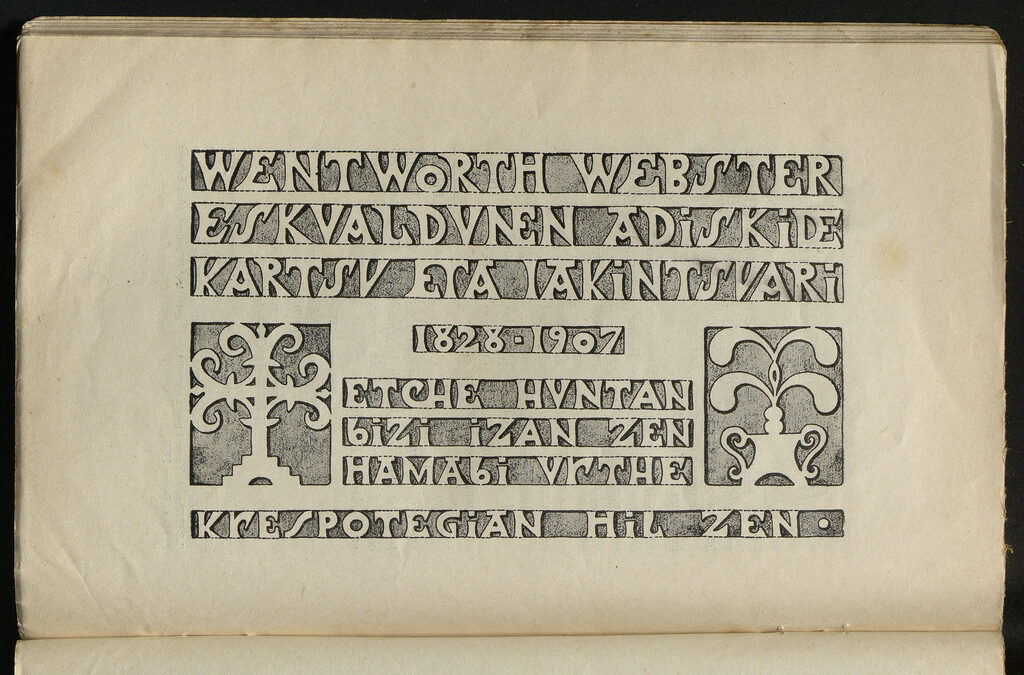 WENTWORTH WEBSTER
ESKVALDVNEN ADiSKiDE
KARTSV ETA IAKiNTSVARi
1828-1907
ETCHE HVNTAN
biZi iZAN ZEN
HAMAbi VrTHE
KrESPOTEGiAN HiL ZEN.